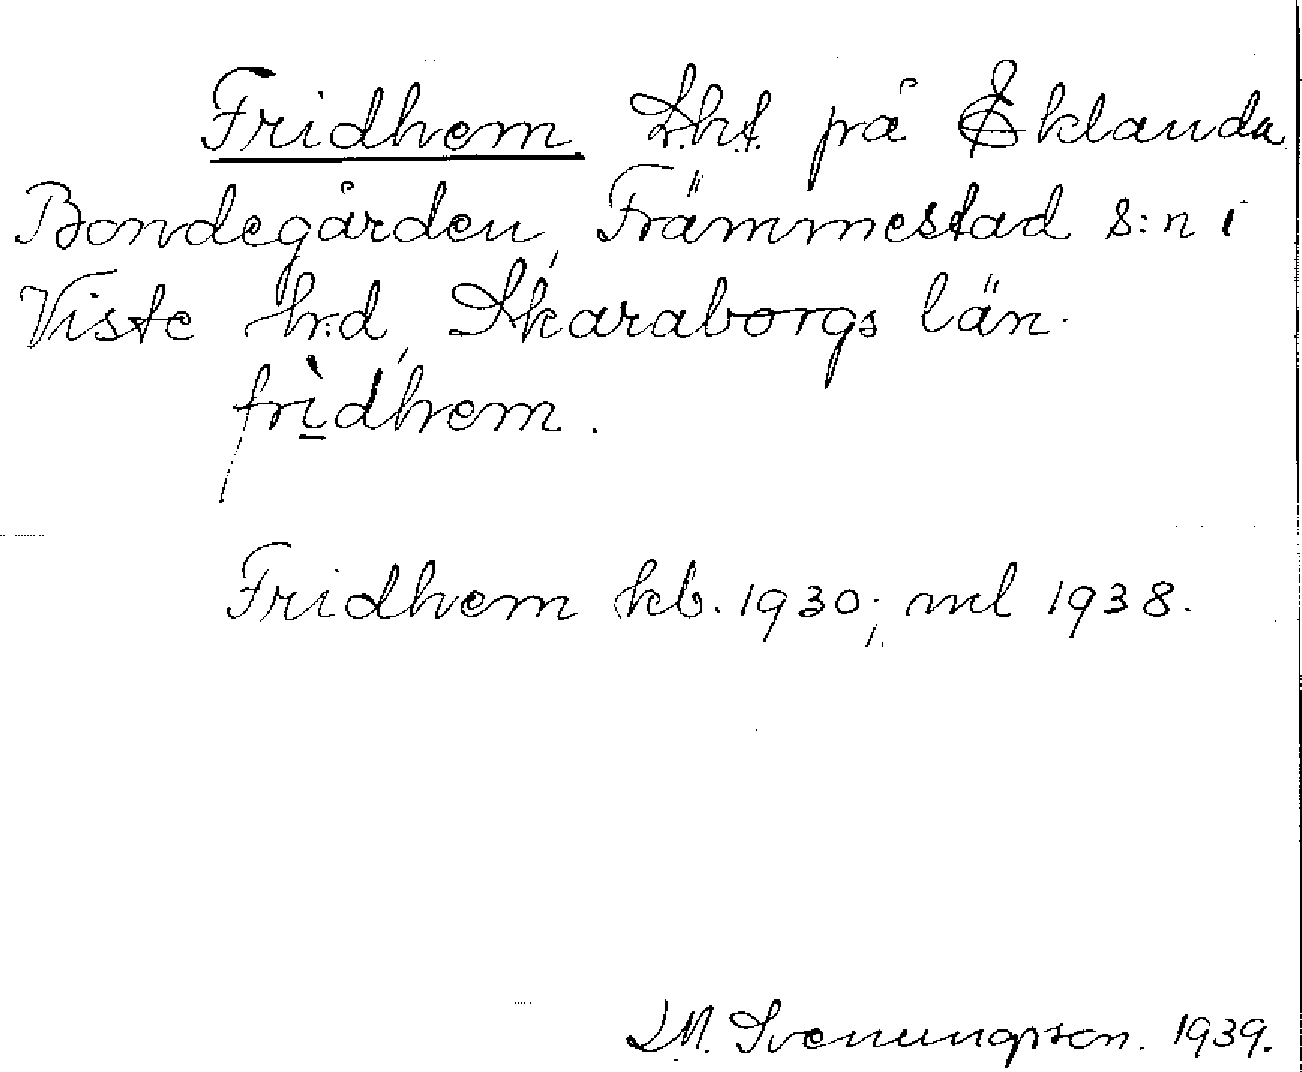 Fridhem. Lht. på Eklanda
Bondegården, Främmestad s:n i
Viste h:d, Skaraborgs län.
frìdhem.
Fridhem kb. 1930; ml 1938.
I.M. Svenungsson. 1939.